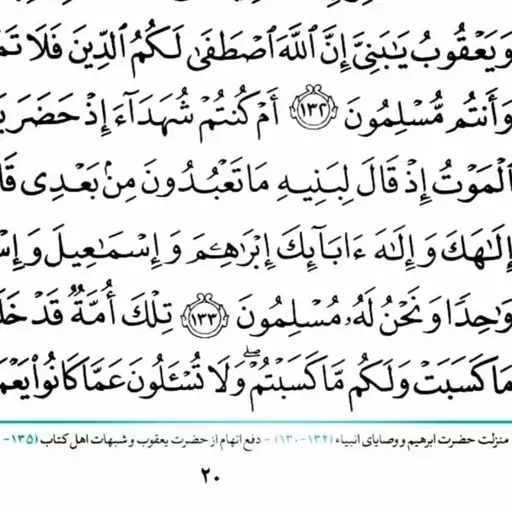 وَيَعْقُوبُ يَٰبَنِىَّ إِنَّ ٱللَّهَ ٱصْطَفَىٰ لَكُمُ ٱلدِّينَ فَلَا تَمُ
وَأَنتُم مُّسْلِمُونَ ﴿١٣٢﴾ أَمْ كُنتُمْ شُهَدَآءَ إِذْ حَضَرَ يَ
ٱلْمَوْتُ إِذْ قَالَ لِبَنِيهِ مَا تَعْبُدُونَ مِنۢ بَعْدِى قَا
إِلَٰهَكَ وَإِلَٰهَ ءَابَآئِكَ إِبْرَٰهِـۧمَ وَإِسْمَٰعِيلَ وَإِسْ
وَٰحِدًا وَنَحْنُ لَهُۥ مُسْلِمُونَ ﴿١٣٣﴾ تِلْكَ أُمَّةٌ قَدْ خَلَ
مَا كَسَبَتْ وَلَكُم مَّا كَسَبْتُمْ ۖ وَلَا تُسْـَٔلُونَ عَمَّا كَانُوا۟ يَعْمَ
منزلت حضرت ابرهیم و وصایای انبیاء (۱۳۲-۱۳۰) - دفع اتهام از حضرت یعقوب و شبهات اهل کتاب (۱۳۵-
۲۰